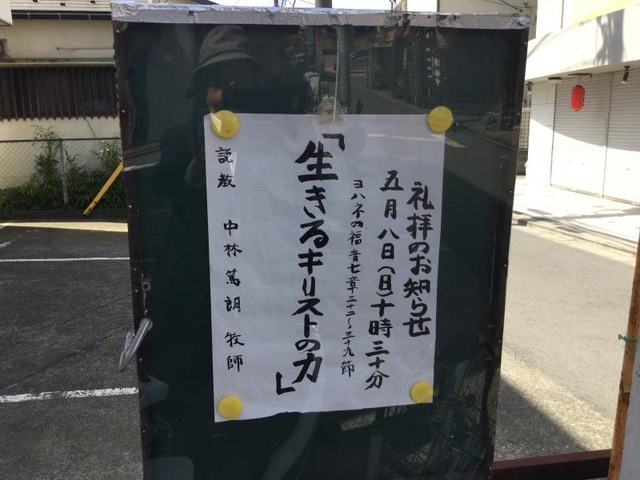 礼拝のお知らせ
五月八日(日)十時三十分
ヨハネの福音七章三十二~三十九節
「生きるキリストの力」
説教 中林篤朗牧師